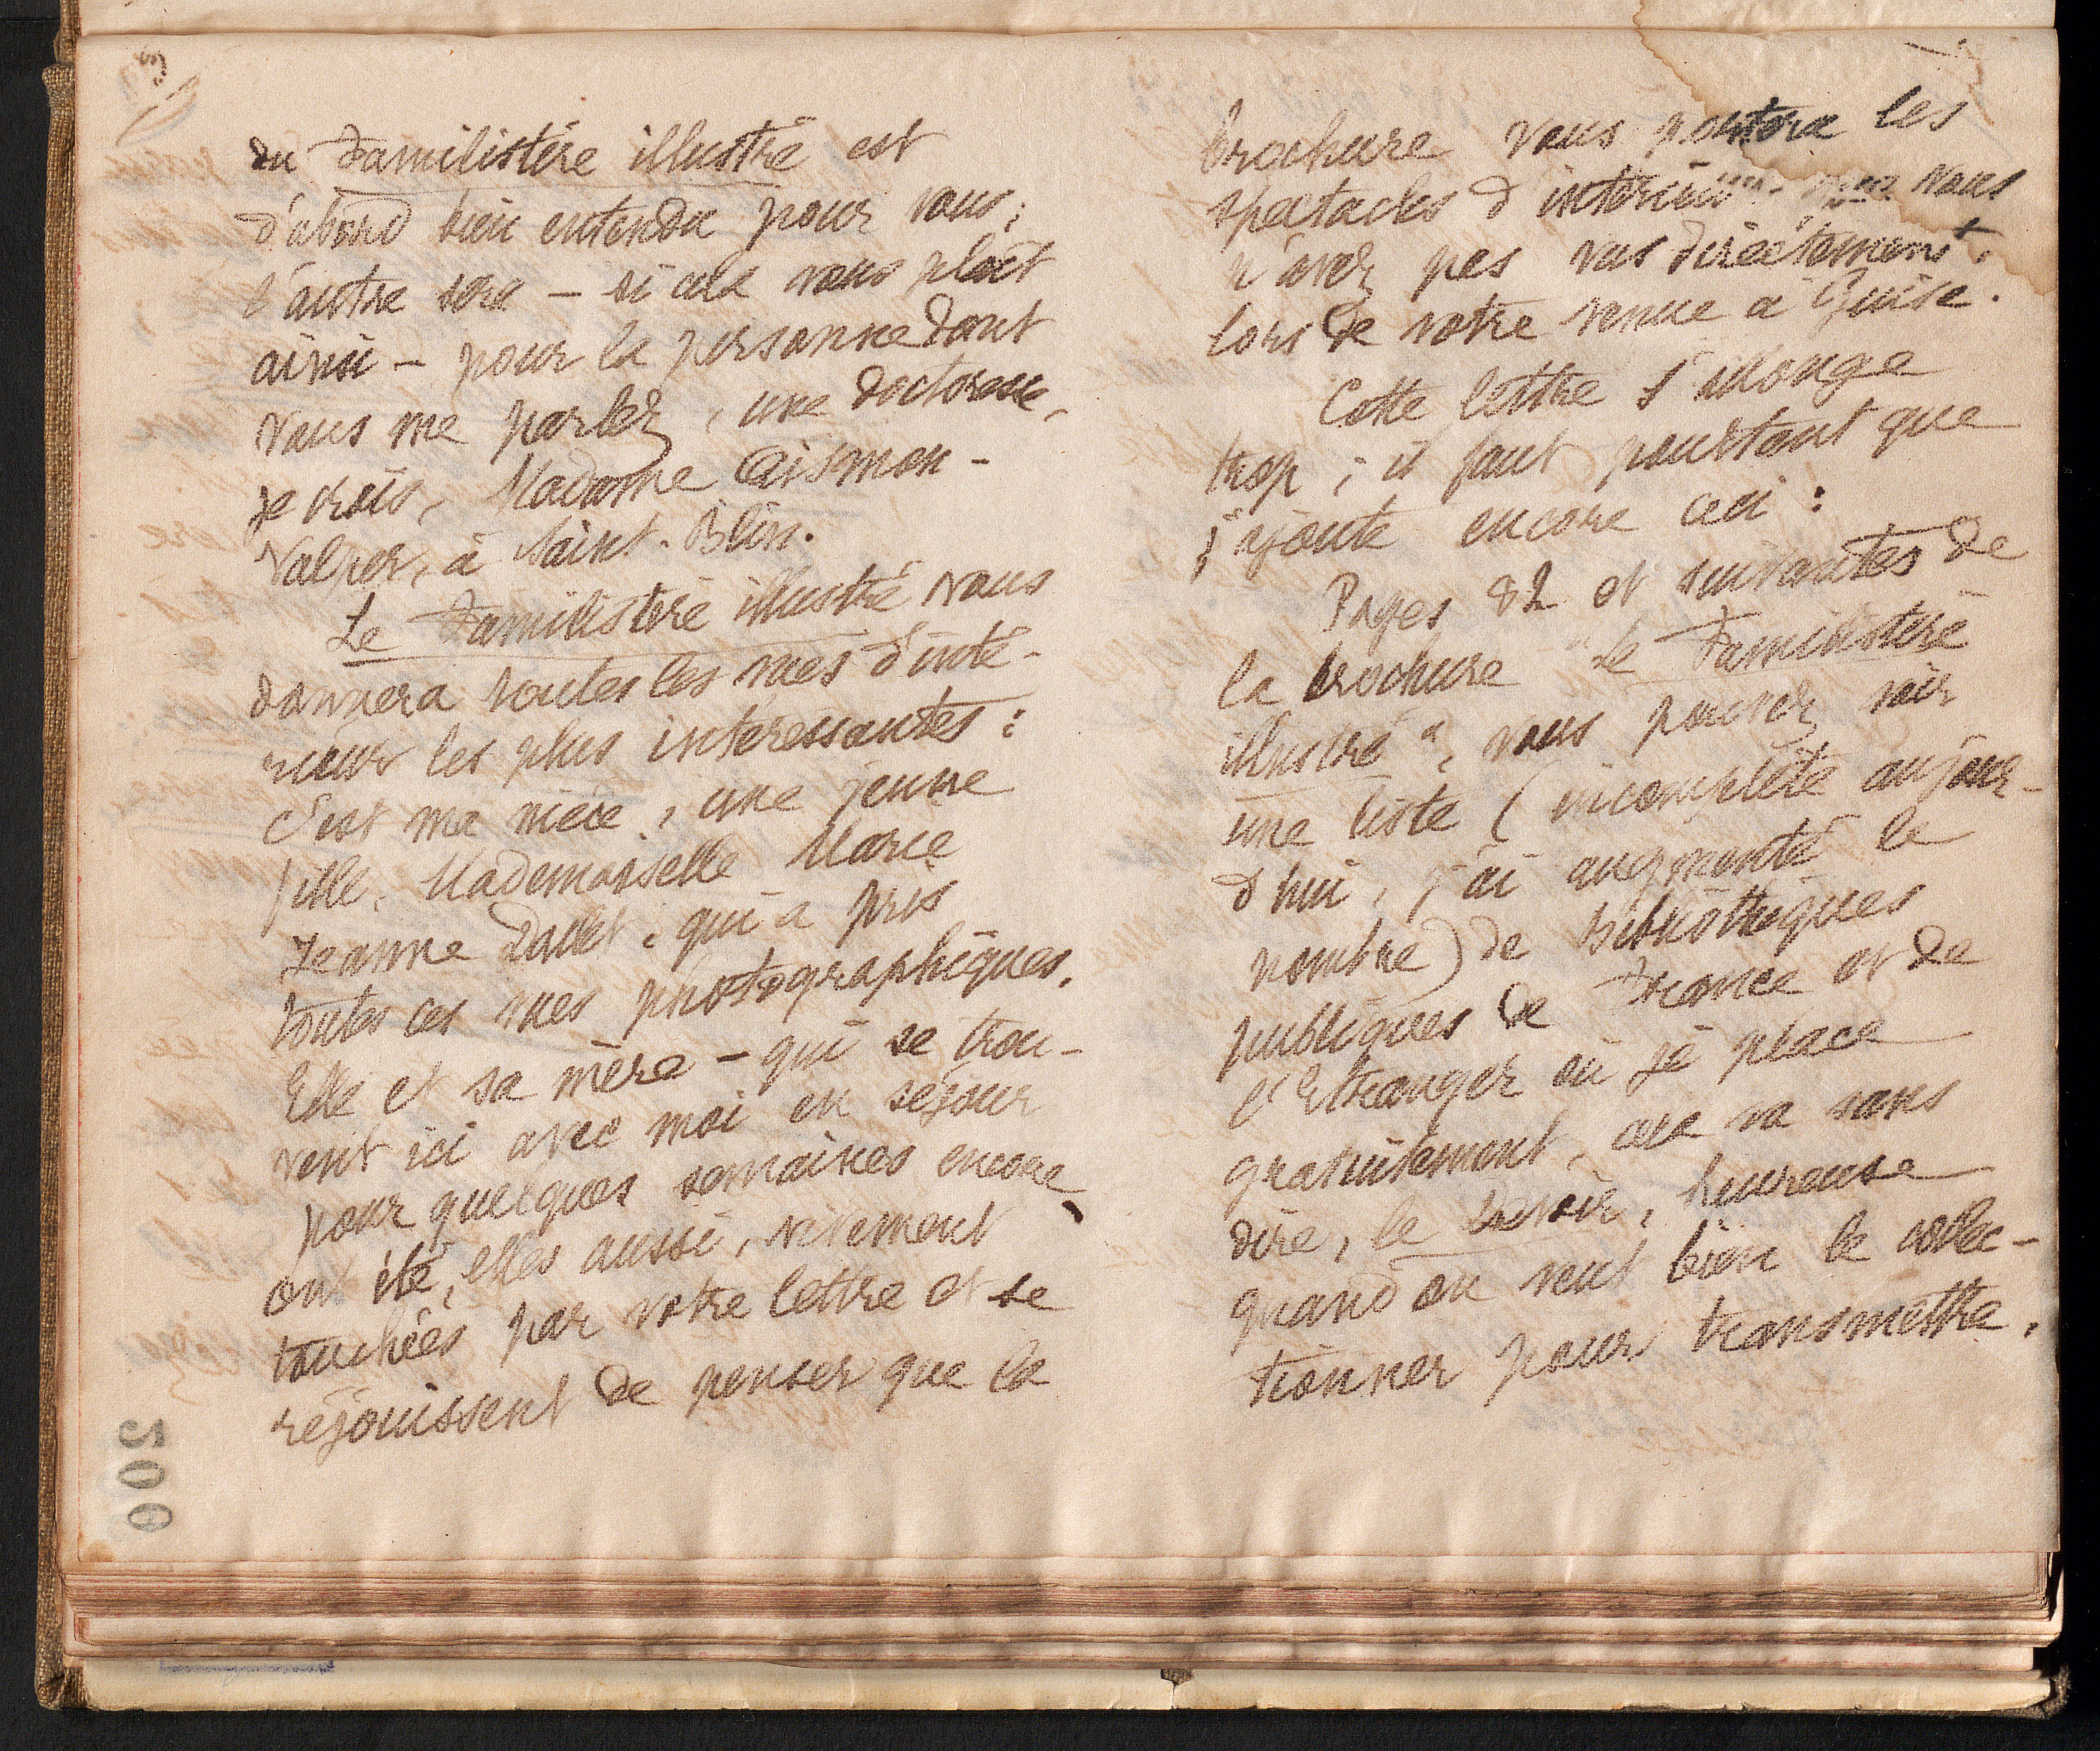 du Familistère illustré est
d'abord bien entendu pour vous ;
l'autre sera – si cela vous plaît
ainsi – pour la personne dont
vous me parlez, une doctoresse,
je crois, Madame
à Saint-Blin.
Le Familistère illustré vous
donnera toutes les vues d'inté-
rieur les plus intéressantes :
C'est ma nièce, une jeune
fille, Mademoiselle Marie
Jeanne Dallet, qui a pris
toutes ces vues photographiques.
Elle et sa mère – qui se trou-
vent ici avec moi en séjour
pour quelques semaines encore
ont été, elles aussi, vivement
touchées par votre lettre et se
réjouissent de penser que la
brochure vous portera les
spectacles d'intérieur que vous
n'avez pas vus directement
lors de votre venue à Guise.
Cette lettre s'allonge
trop ; il faut pourtant que
j'ajoute encore ceci :
Pages 82 et suivantes de
la brochure "Le Familistère
illustré", vous pouvez voir
une liste (incomplète aujour-
d'hui, j'ai augmenté le
nombre) de Bibliothèques
publiques de France et de
l'Etranger où je place
gratuitement, cela va sans
dire, le Devoir, heureuse
quand on veut bien le collec-
tionner pour transmettre.
200